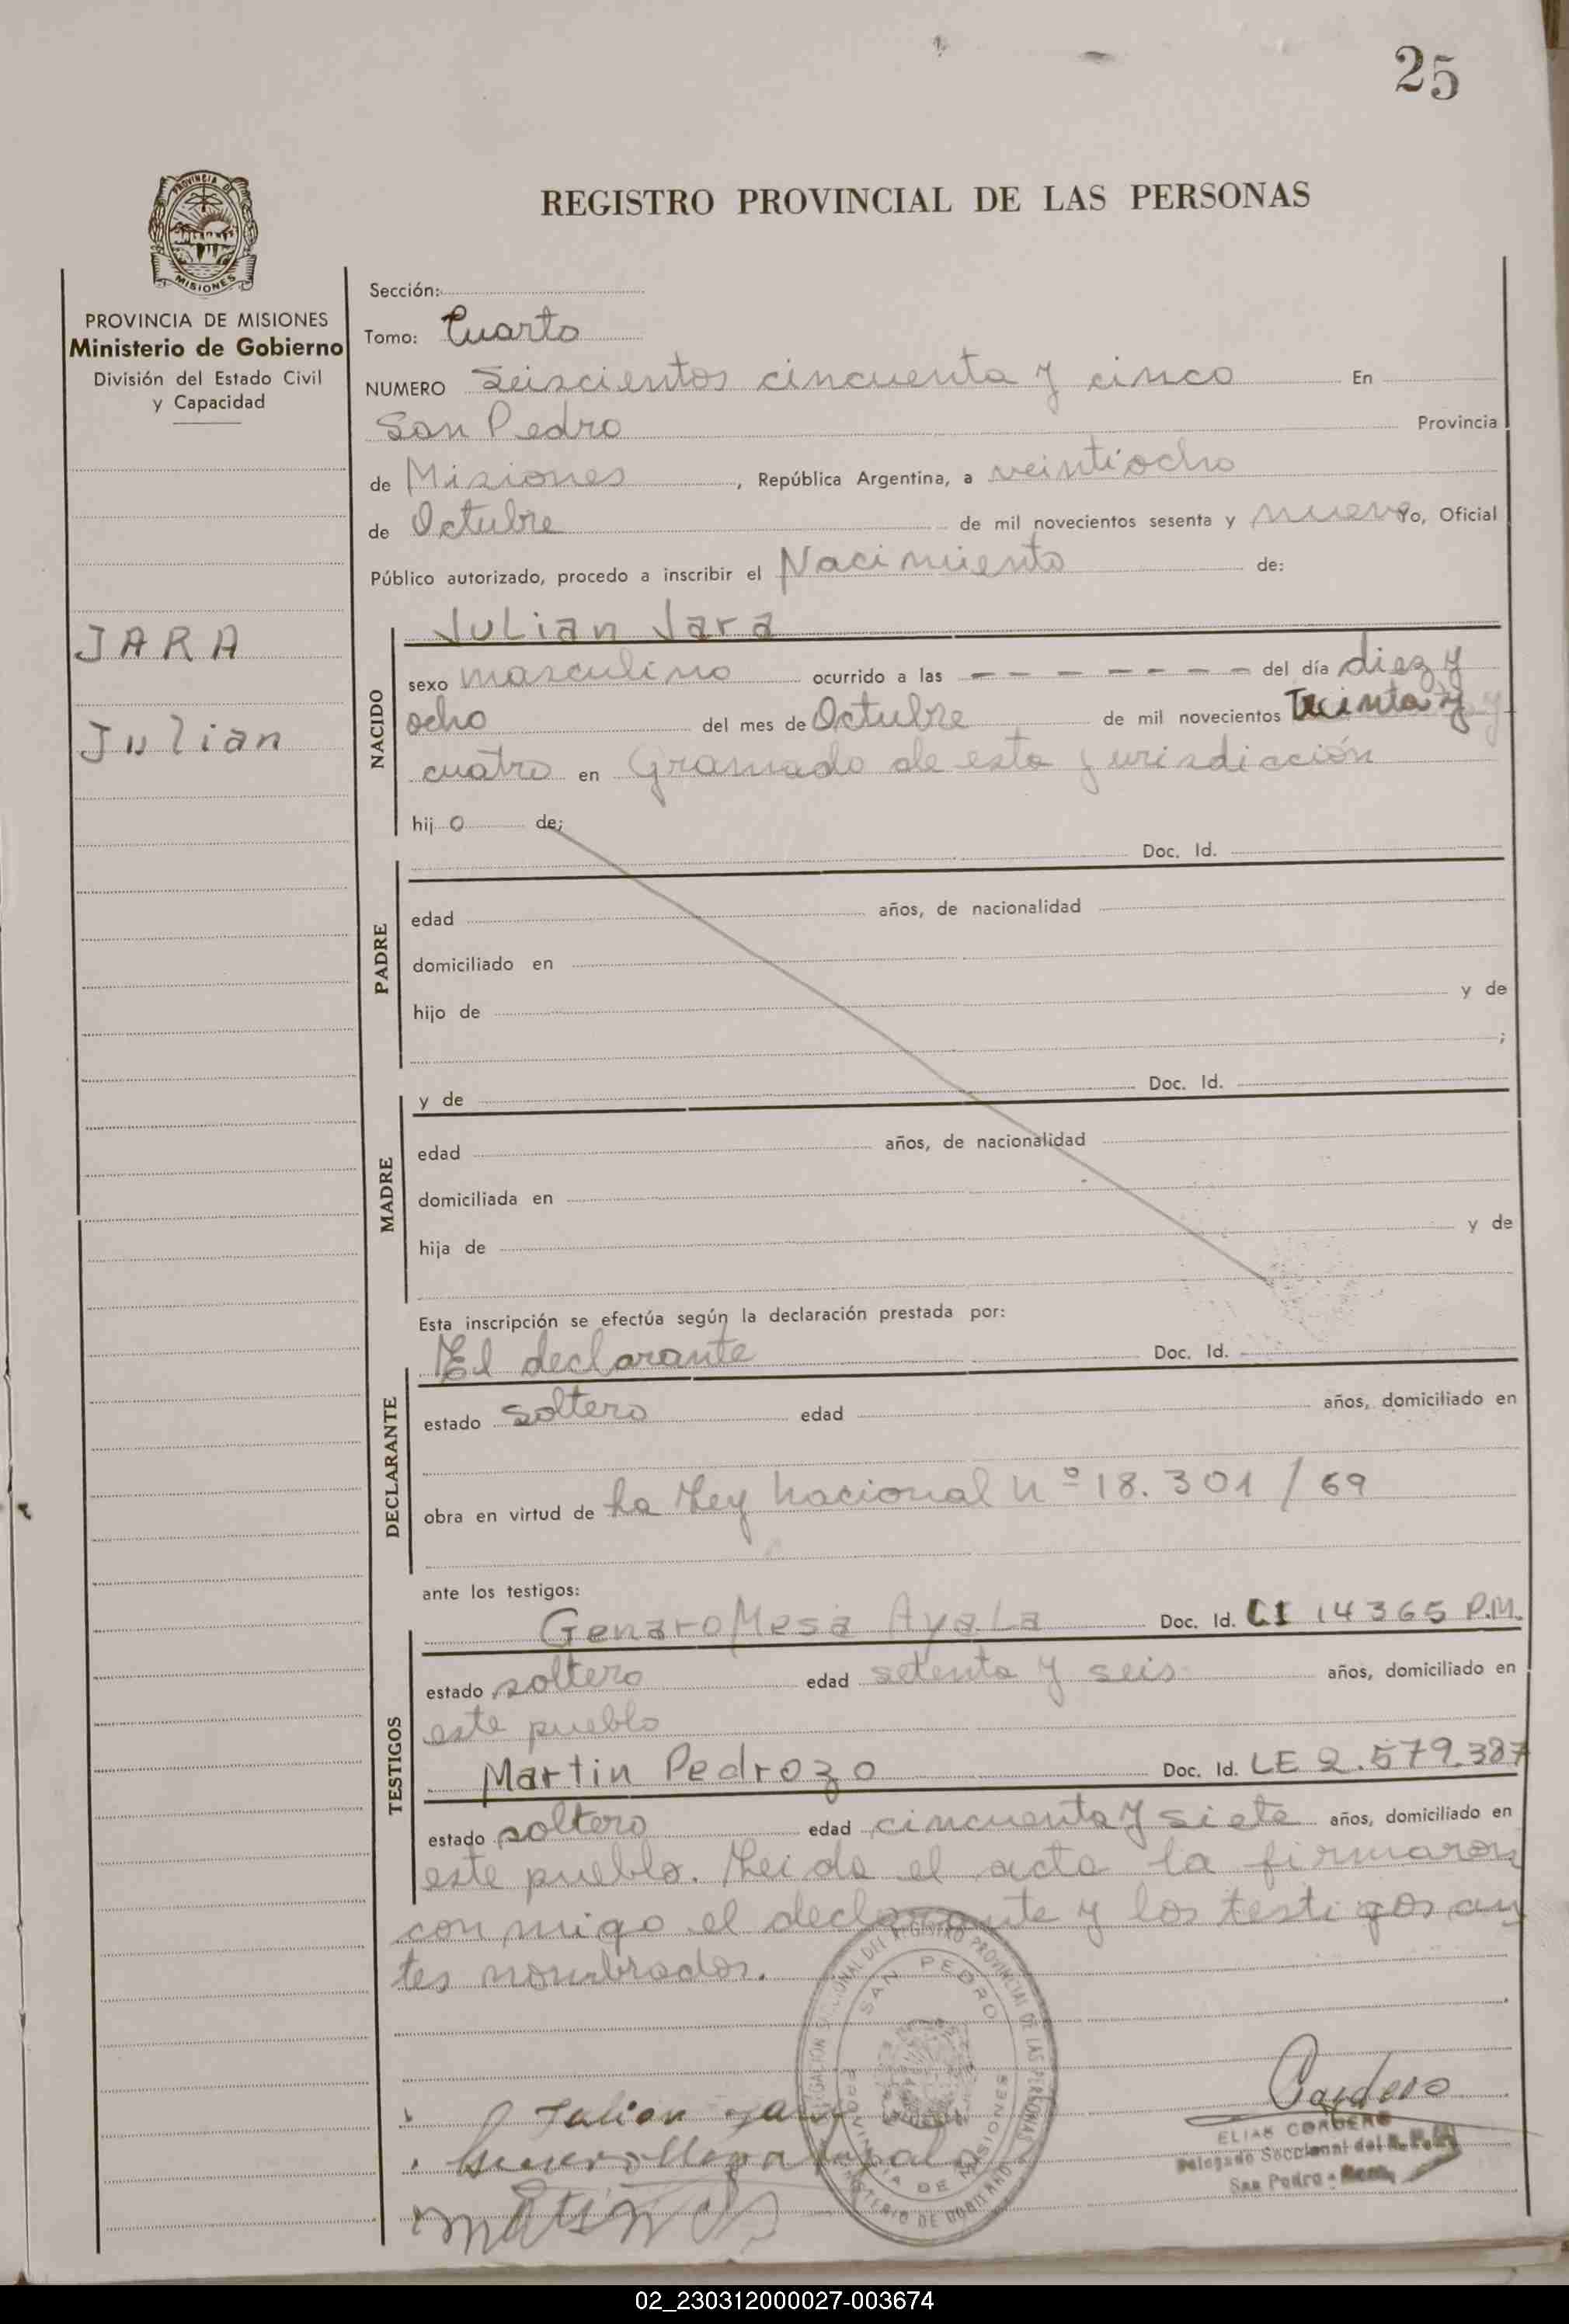 25
PROVINCIA DE
MISIONES
REGISTRO PROVINCIAL DE LAS PERSONAS
PROVINCIA DE MISIONES
Ministerio de Gobierno
División del Estado Civil
y Capacidad
JARA
Julian
Sección:
Tomo: Cuarto
NUMERO Seiscientos cincuenta y cinco En
San Pedro Provincia
de Misiones, República Argentina, a veintiocho
de Octubre de mil novecientos sesenta y nueve Yo, Oficial
Público autorizado, procedo a inscribir el Nacimiento de:
NACIDO
Julian Jara
sexo masculino ocurrido a las – – – – – – – del día diez y
ocho del mes de Octubre de mil novecientos Treinta y
cuatro en Gramado de esta jurisdicción
hij o de:
PADRE
Doc. Id.
edad años, de nacionalidad
domiciliado en
hijo de y de
;
MADRE
y de Doc. Id.
edad años, de nacionalidad
domiciliada en
hija de y de
Esta inscripción se efectúa según la declaración prestada por:
DECLARANTE
El declarante Doc. Id.
estado soltero edad años, domiciliado en
obra en virtud de La Ley Nacional Nº 18.301/69
ante los testigos:
TESTIGOS
Genaro Mesa Ayala Doc. Id. CI 14365 P.M.
estado soltero edad setenta y seis años, domiciliado en
este pueblo
Martin Pedrozo Doc. Id. LE 2.579.387
estado soltero edad cincuenta y siete años, domiciliado en
este pueblo. Leida el acta la firmaron
conmigo el declarante y los testigos an
tes nombrados.
DELEGACIÓN SECCIONAL DEL REGISTRO PROVINCIAL DE LAS PERSONAS
SAN PEDRO
PROVINCIA DE MISIONES
MINISTERIO DE GOBIERNO
Julian Jara
Cordero
ELIAS CORDERO
Delegado Seccional del R. P. P.
San Pedro - Mnes.
02_230312000027-003674